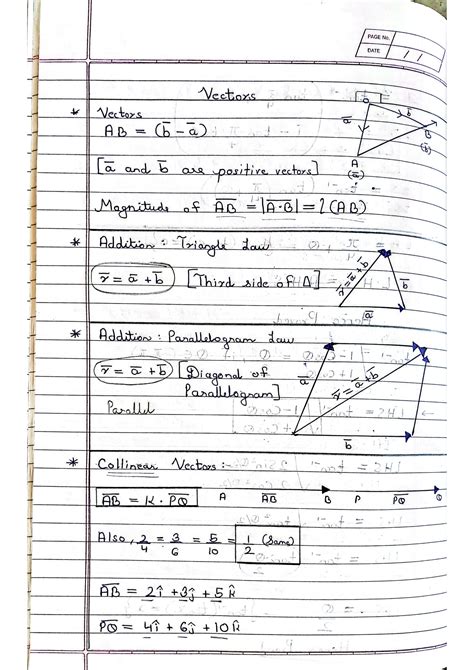 PAGE No.
DATE
Vectors
* Vectors
AB = (b̄ - ā)
[ā and b̄ are positive vectors]
Magnitude of A̅B̅ = |A̅·B̅| = l(AB)
O
ā
b̄
A
(ā)
B
(b̄)
* Addition : Triangle Law
r̄ = ā + b̄ [Third side of Δ]
r̄ = ā + b̄
b̄
ā
* Addition : Parallelogram Law
r̄ = ā + b̄ [Diagonal of
Parallelogram]
Parallel
ā
r̄ = ā + b̄
b̄
* Collinear Vectors :-
A̅B̅ = K · P̅Q̅
A A̅B̅ B P P̅Q̅ Q
Also, 2/4 = 3/6 = 5/10 = 1/2 (Same)
A̅B̅ = 2î + 3ĵ + 5k̂
P̅Q̅ = 4î + 6ĵ + 10k̂